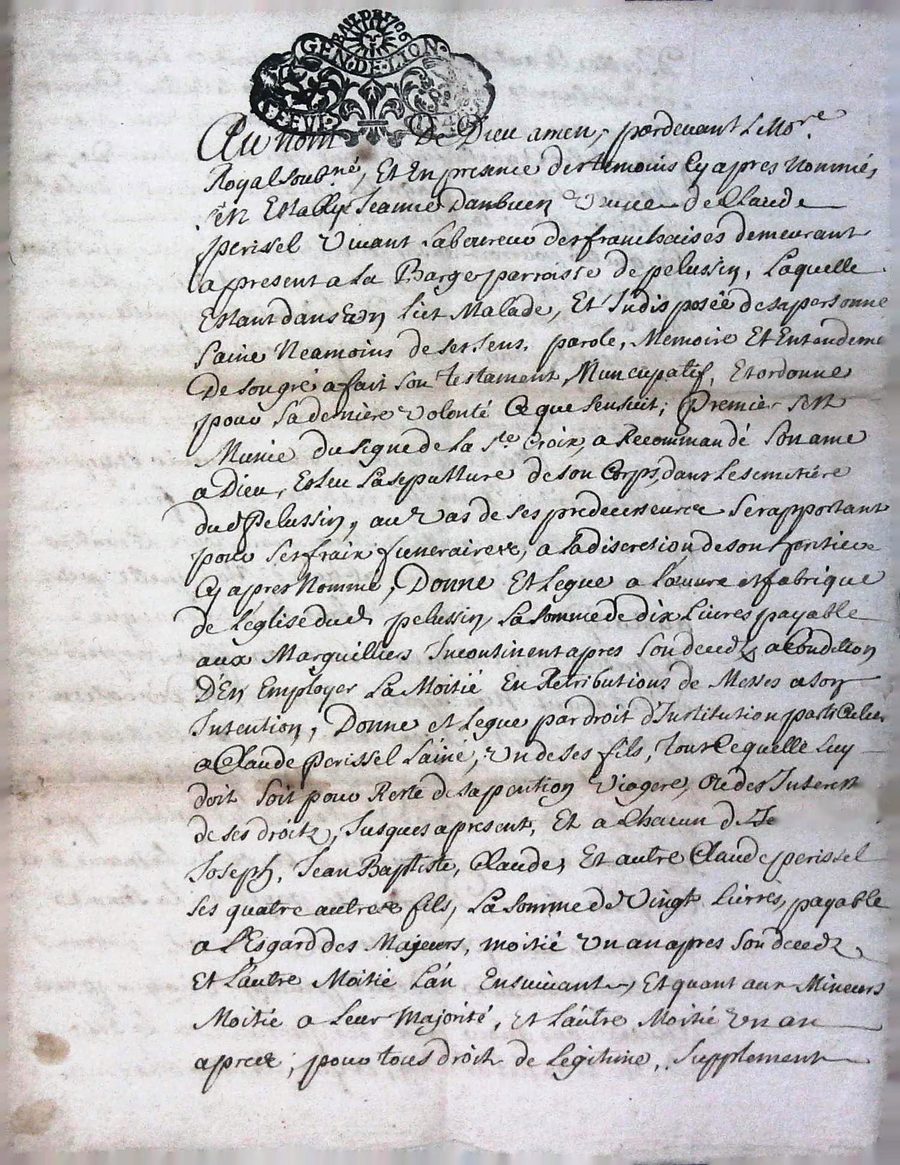 GEN. DE. LION.
Au nom De Dieu amen, pardevant Le No.re
Royal soubné, Et En presence des temoins Cy apres nommés,
Est Establye Jeanne Danbuen Veuve de Claude
perissel Vivant Laboureur des franchaises demeurant
a present a La Barge parroisse de pelussin, Laquelle
Estant dans un lict Malade, Et Indisposée de sa personne
saine Neamoins de ses sens, parole, Memoire Et Entendeme
De son gré a fait son testament Nuncupatif, Et ordonne
pour sa dernière Volonté Ce que sensuit; Premier sest
Munie du signe de la Ste Croix, a Recommandé son ame
a Dieu, Esleu La sepulture de son Corps, dans Le cimetiére
dud Pelussin, au Vas de ses predecesseurs Se rapportant
pour ses fraix funeraires, a la discretion de son heritier
Cy apres Nommé, Donne Et Legue a L'œuvre et fabrique
de L'église dud pelussin, La somme de dix Livres payable
aux Marguilliers Incontinent apres son deceds a Condition
D'En Employer La Moitié En Retributions de Messes a son
Intention, Donne et Legue par droit d'Institution particulier
a Claude Perissel L'ainé, Un de ses fils, tout Ce quelle Luy
doit soit pour Reste de sa pention Viagere, Ou des Interest
de ses droits, Jusques a present, Et a Chacun de
Joseph, Jean Baptiste, Claude, Et autre Claude perissel
ses quatre autres fils, La somme de Vingt Livres, payable
a L'Esgard des Majeurs, moitié Un an apres son deceds
Et L'autre Moitié L'an Ensuivant, Et quant aux Mineurs
Moitié a Leur Majorité, et L'autre Moitié Un an
apres, pour tous droit de Legitime, Supplement